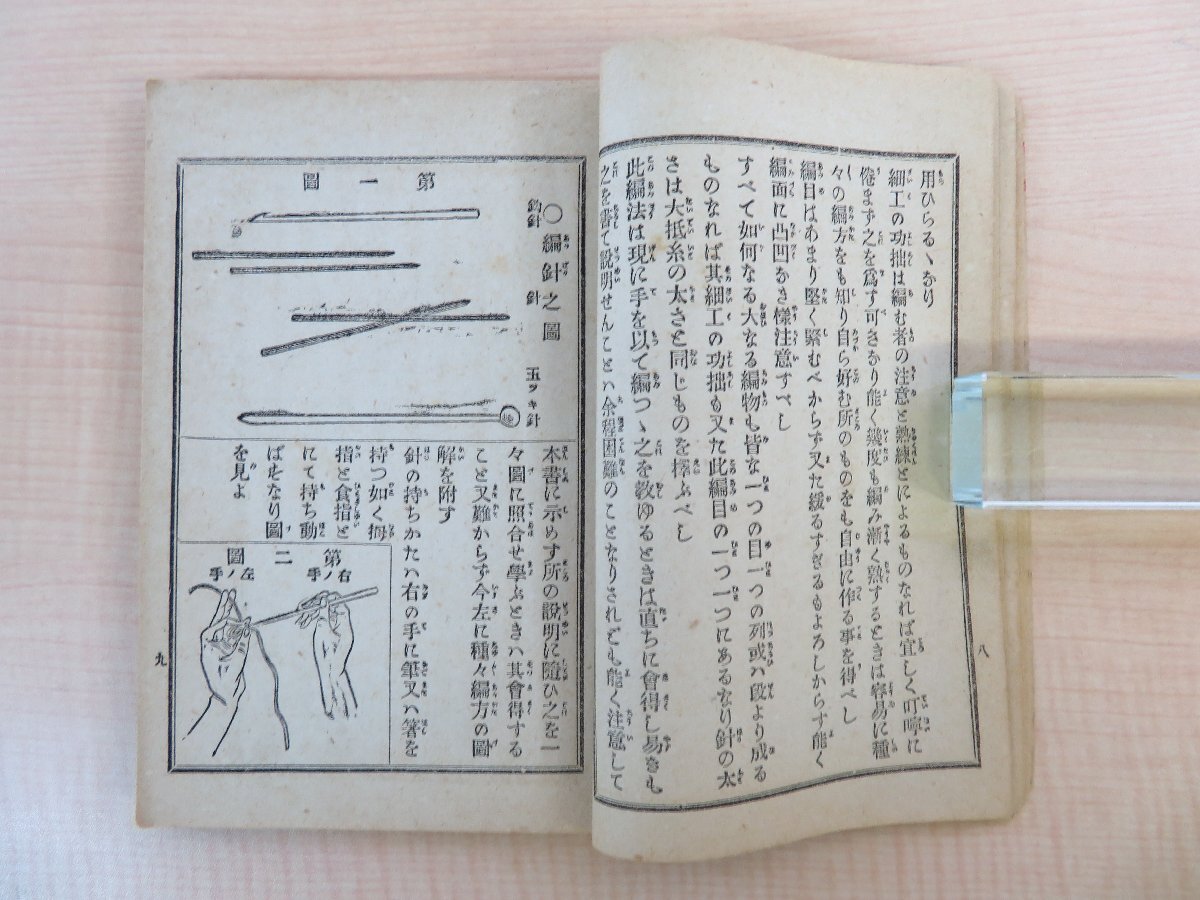 用ひらるゝなり
細工の功拙は編む者の注意と熟練とによるものなれば宜しく叮嚀に
倦まず之を爲す可きなり能く幾度も編み漸く熟するときは容易に種
々の編方をも知り自ら好む所のものをも自由に作る事を得べし
編目はあまり堅く緊むべからず又た緩るすぎるもよろしからず能く
編面に凸凹なき樣注意すべし
すべて如何なる大なる編物も皆な一つの目一つの列或ハ段より成る
ものなれば其細工の功拙も又た此編目の一つ一つにあるなり針の太
さは大抵糸の太さと同じものを擇ぶべし
此編法は現に手を以て編つゝ之を敎ゆるときは直ちに會得し易きも
之を書て說明せんことハ余程困難のことなりされども能く注意して
八
○編針之圖
第一圖
鈎針
針
玉ツキ針
本書に示めす所の說明に隨ひ之を一
々圖に照合せ學ぶときハ其會得する
こと又難からず今左に種々編方の圖
解を附す
針の持ちかたハ右の手に筆又ハ箸を
持つ如く拇
指と食指と
にて持ち動
ばすなり圖
を見よ
第二圖
右ノ手
左ノ手
九